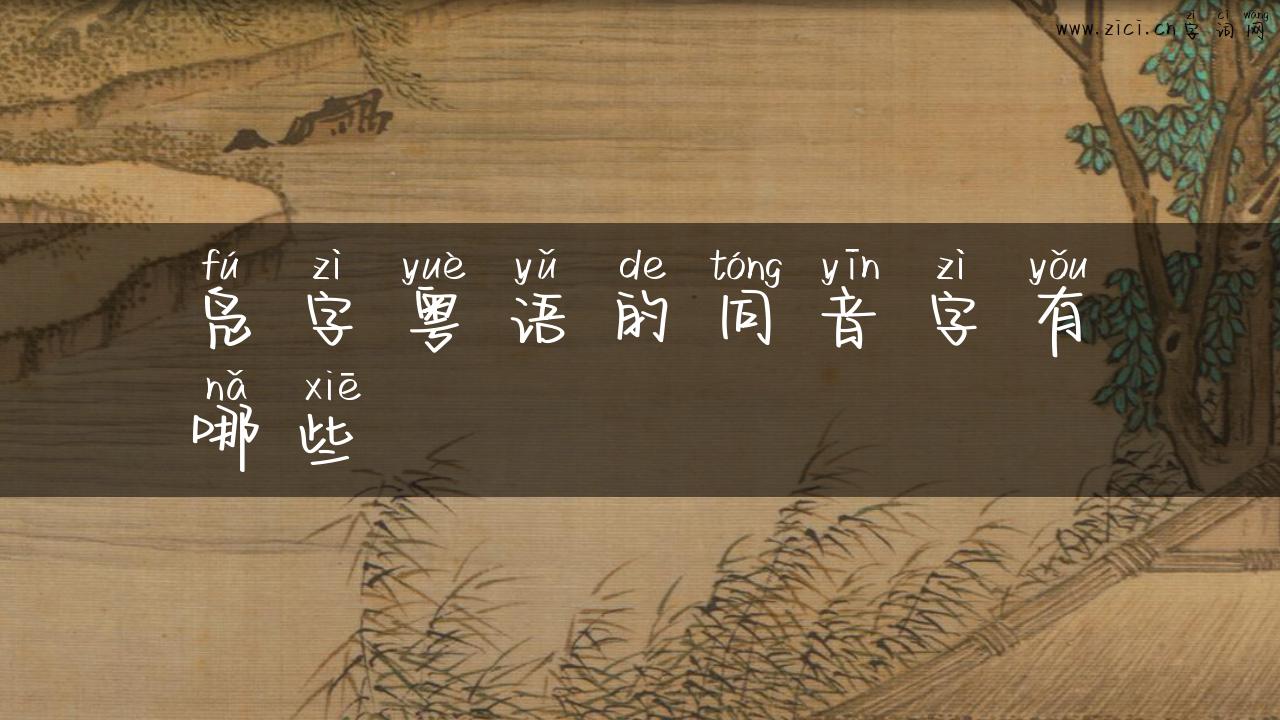 zì cí wǎng
www.zici.cn字词网
fú zì yuè yǔ de tóng yīn zì yǒu
凫字粤语的同音字有
nǎ xiē
哪些